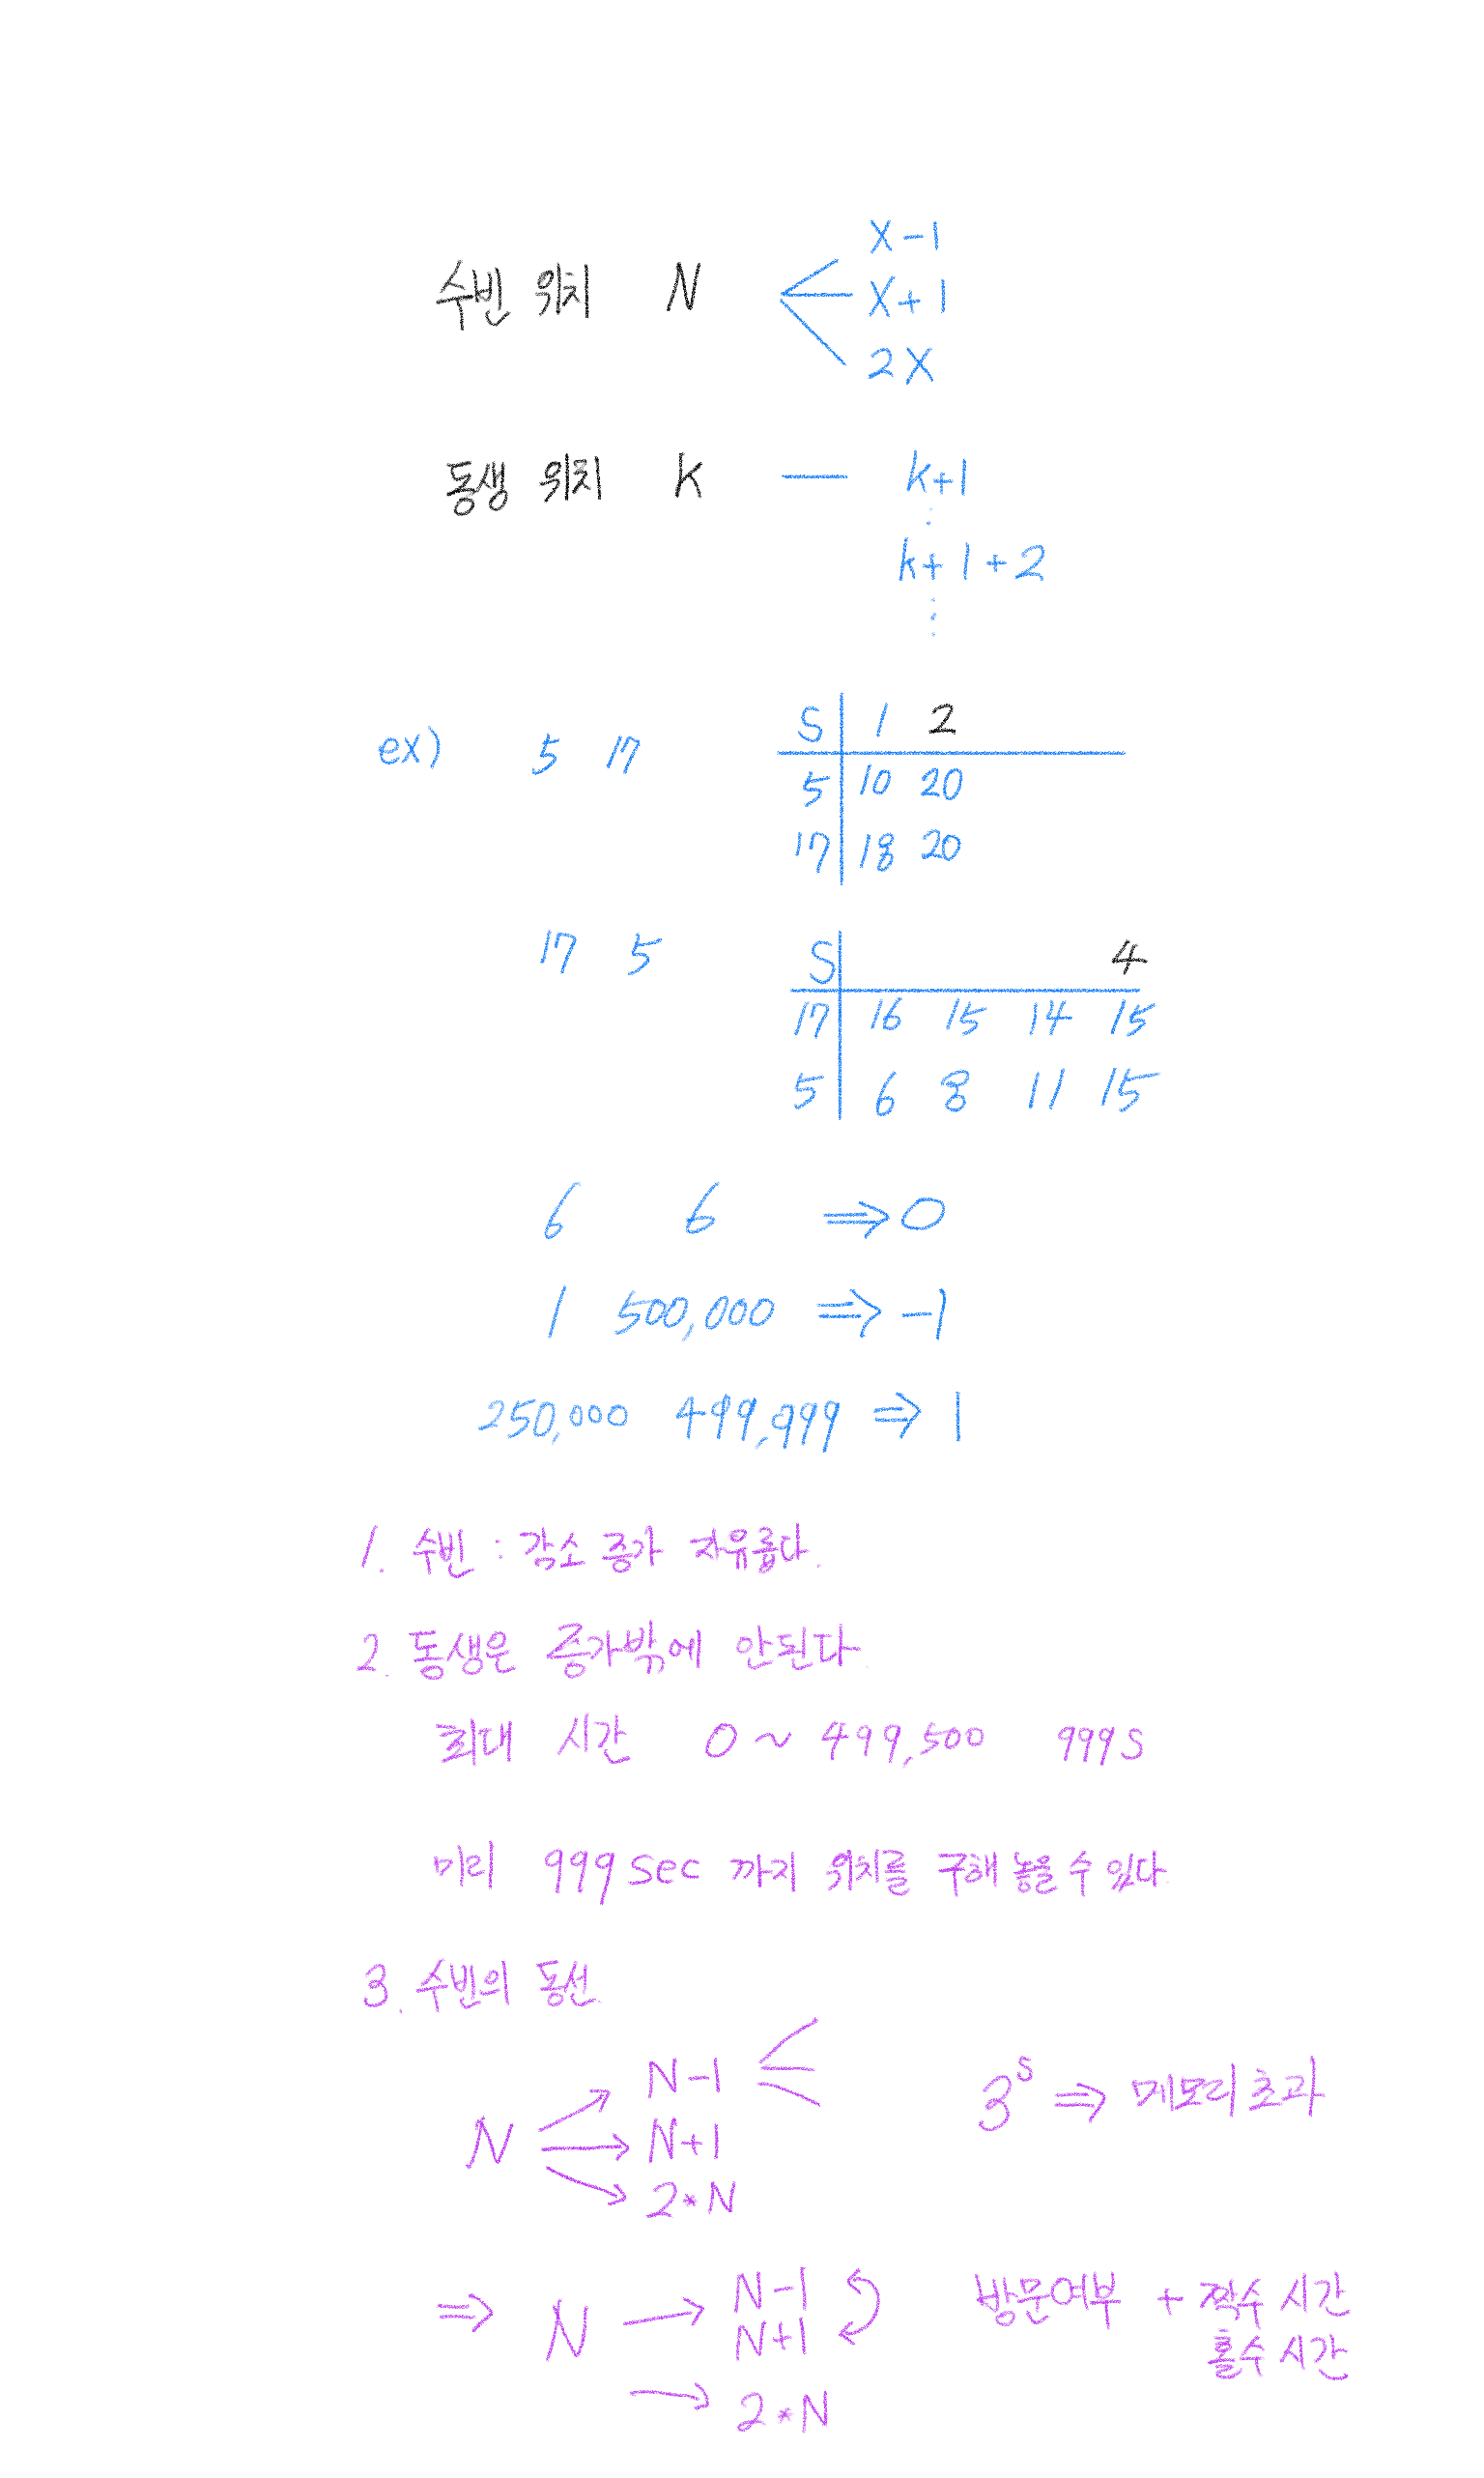 X-1
수빈 위치 N X+1
2X
동생 위치 K k+1
k+1+2
ex) 5 17 S 1 2
5 10 20
17 18 20
17 5 S 4
17 16 15 14 15
5 6 8 11 15
6 6 ⇒ 0
1 500,000 ⇒ -1
250,000 499,999 ⇒ 1
1. 수빈 : 감소 증가 자유롭다.
2. 동생은 증가밖에 안된다
최대 시간 0 ~ 499,500 999s
미리 999 sec 까지 위치를 구해 놓을 수 있다.
3. 수빈의 동선.
N-1
N N+1 3^s ⇒ 메모리 초과
2*N
⇒ N → N-1 방문여부 + 짝수 시간
N+1 홀수 시간
→ 2*N